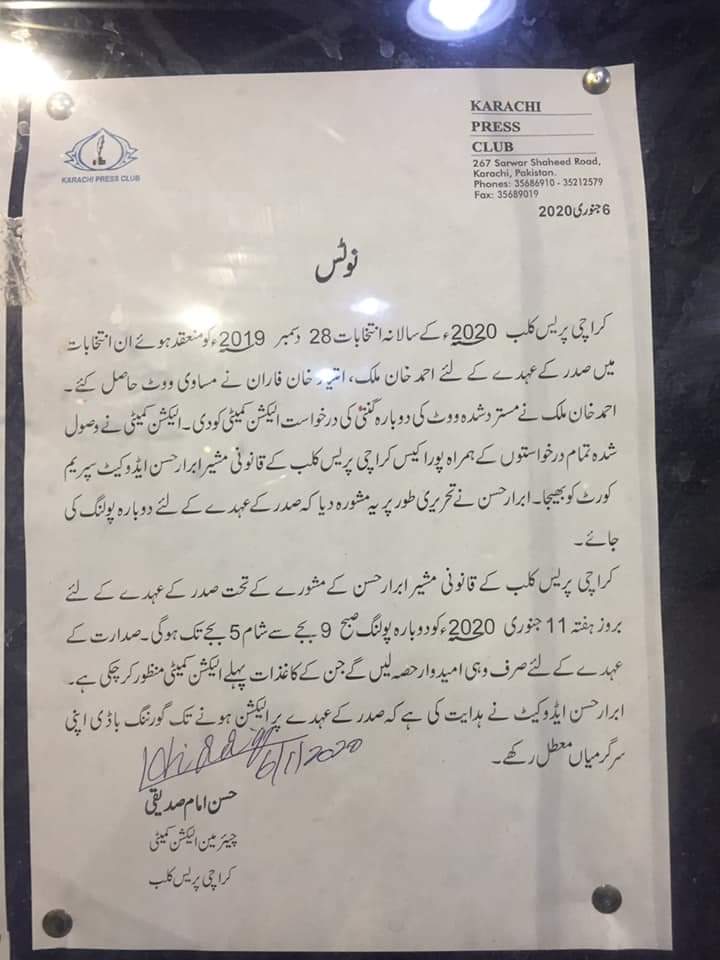 KARACHI
PRESS
CLUB
267 Sarwar Shaheed Road,
Karachi, Pakistan.
Phones: 35686910 - 35212579
Fax: 35689019
KARACHI PRESS CLUB
6 جنوری 2020
نوٹس
کراچی پریس کلب 2020ء کے سالانہ انتخابات 28 دسمبر 2019ء کو منعقد ہوئے ان انتخابات
میں صدر کے عہدے کے لئے احمد خان ملک، امتیاز خان فاران نے مساوی ووٹ حاصل کئے۔
احمد خان ملک نے مسترد شدہ ووٹ کی دوبارہ گنتی کی درخواست الیکشن کمیٹی کو دی۔ الیکشن کمیٹی نے وصول
شدہ تمام درخواستوں کے ہمراہ پورا کیس کراچی پریس کلب کے قانونی مشیر ابرار حسن ایڈوکیٹ سپریم
کورٹ کو بھیجا۔ ابرار حسن نے تحریری طور پر یہ مشورہ دیا کہ صدر کے عہدے کے لئے دوبارہ پولنگ کی
جائے۔
کراچی پریس کلب کے قانونی مشیر ابرار حسن کے مشورے کے تحت صدر کے عہدے کے لئے
بروز ہفتہ 11 جنوری 2020ء کو دوبارہ پولنگ صبح 9 بجے سے شام 5 بجے تک ہوگی۔ صدارت کے
عہدے کے لئے صرف وہی امیدوار حصہ لیں گے جن کے کاغذات پہلے الیکشن کمیٹی منظور کر چکی ہے۔
ابرار حسن ایڈوکیٹ نے ہدایت کی ہے کہ صدر کے عہدے پر الیکشن ہونے تک گورننگ باڈی اپنی
سرگرمیاں معطل رکھے۔
6/1/2020
حسن امام صدیقی
چیئرمین الیکشن کمیٹی
کراچی پریس کلب